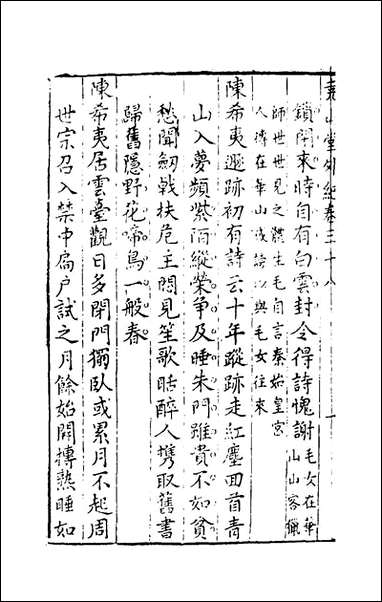 堯山堂外紀卷三十八 一
鎖閉來時自有白雲封今得詩愧謝
毛女在華
山山客獵
師世世見之體生毛自言秦始皇宮
人濤在華山成詩以與毛女往來
陳希夷遯跡初有詩云十年蹤跡走紅塵回首青
山入夢頻紫陌縱榮争及睡朱門雖貴不如貧
愁聞劒戟扶危主悶見笙歌聒醉人携取舊書
歸舊隱野花啼鳥一般春
陳希夷居雲臺觀日多閉門獨臥或累月不起周
世宗召入禁中扃户試之月餘始開摶熟睡如